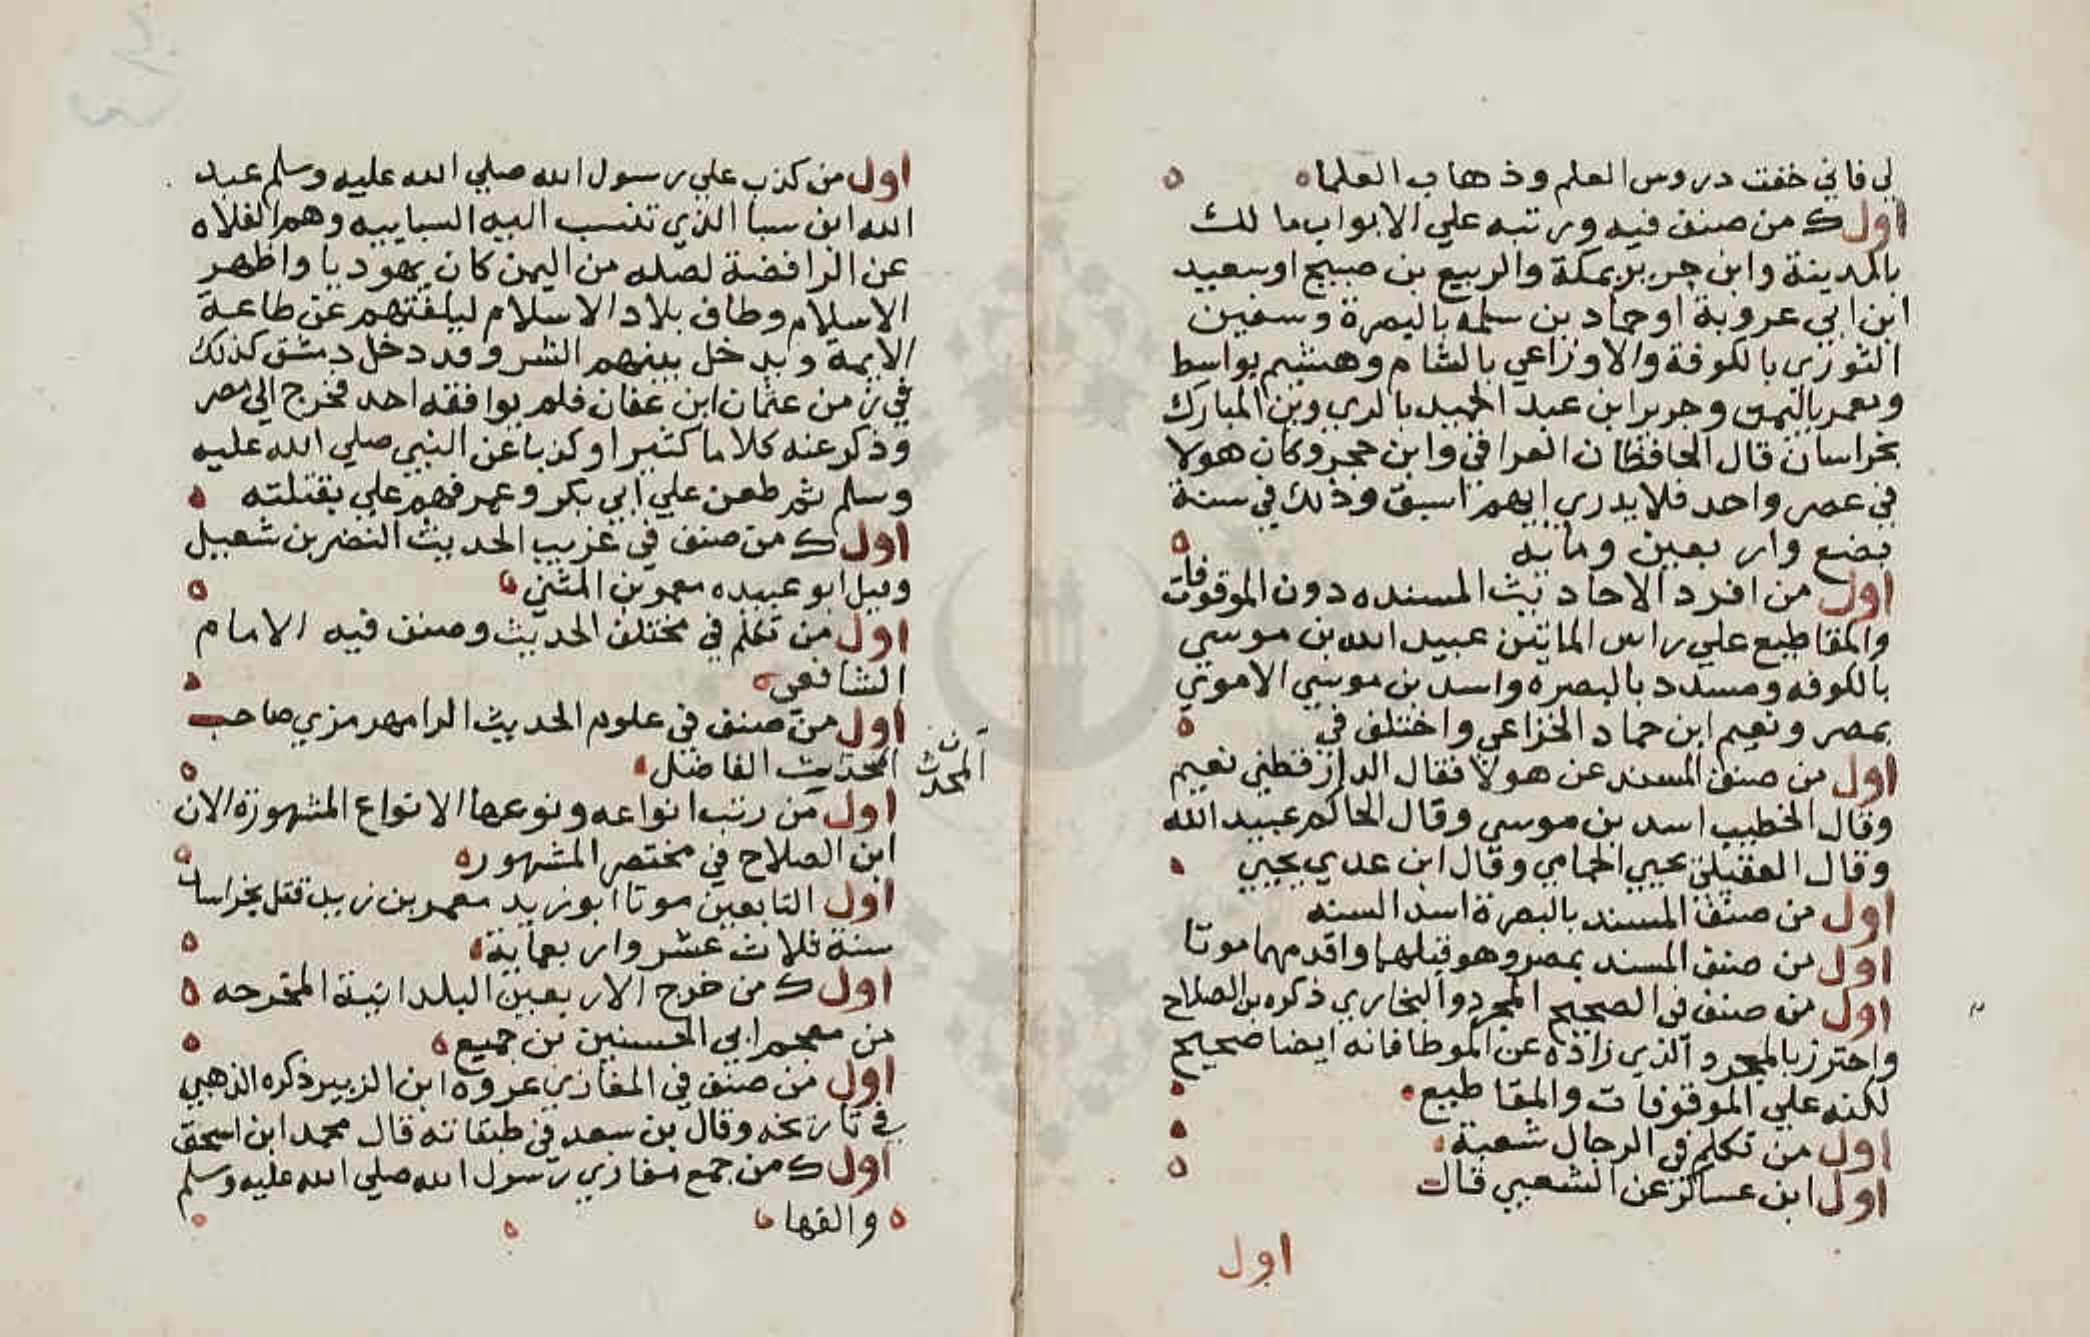 لي فاني خفت دروس العلم وذهاب العلماه
اول ك من صنف فيه ورتبه علي الابواب مالك
بالمدينة وابن جريج بمكة والربيع بن صبيح اوسعيد
ابن ابي عروبة اوحماد بن سلمه بالبصرة وسفين
الثوري بالكوفة والاوزاعي بالشام وهشيم بواسط
ومعمر باليمن وجرير ابن عبد الحميد بالري وبن المبارك
بخراسان قال الحافظان العراقي وابن حجر وكان هولا
في عصر واحد فلا يدري ايهم اسبق وذلك في سنة
بضع واربعين ومايه
اول من افرد الاحاديث المسنده دون الموقوفات
والمقاطيع علي راس المايتين عبيد الله بن موسي
بالكوفه ومسدد بالبصره واسد بن موسي الاموي
بمصر ونعيم ابن حماد الخزاعي واختلف في
اول من صنف المسند عن هولا فقال الدارقطني نعيم
وقال الخطيب اسد بن موسي وقال الحاكم عبيد الله
وقال العقيلي يحيي الحمامي وقال ابن عدي يحيي
اول من صنف المسند بالبصرة اسد السنه
اول من صنف المسند بمصر وهو قبلهما واقدمهما موتا
اول من صنف في الصحيح المجرد والبخاري ذكره بن الصلاح
واحترز بالمجرد الذي زاده عن الموطا فانه ايضا صحيح
لكنه علي الموقوفات والمقاطيع
اول من تكلم في الرجال شعبة
اول ابن عساكر عن الشعبي قال
اول
اول من كذب علي رسول الله صلي الله عليه وسلم عبد
الله ابن سبا الذي تنسب اليه السباييه وهم الغلاه
عن الرافضة لصله من اليمن كان يهوديا واظهر
الاسلام وطاف بلاد الاسلام ليلفتهم عن طاعة
الايمة ويدخل بينهم الشر وقد دخل دمشق كذلك
في زمن عثمان ابن عفان فلم يوافقه احد فخرج الي مصر
وذكر عنه كلاما كثيرا وكذبا عن النبي صلي الله عليه
وسلم ثم طعن علي ابي بكر وعمر فهم علي بقتلته
اول ك من صنف في غريب الحديث النضر بن شعبيل
وقيل ابو عبيده معمر بن المثني
اول من تكلم في مختلف الحديث وصنف فيه الامام
الشافعي
اول من صنف في علوم الحديث الرامهرمزي صاحب
المحدث
الحديث الفاضل
اول من رتب انواعه ونوعها الانواع المشهورة الان
ابن الصلاح في مختصر المشهوره
اول التابعين موتا ابو زيد معمر بن زيد قتل بخراسان
سنة ثلاث عشر واربعماية
اول ك من خرج الاربعين البلدانية المخرجه
من معجم ابي الحسنين بن جميع
اول من صنف في المغازي عروه ابن الزبير ذكره الذهبي
في تاريخه وقال بن سعد في طبقاته قال محمد ابن اسحق
اول ك من جمع مغازي رسول الله صلي الله عليه وسلم
والفها